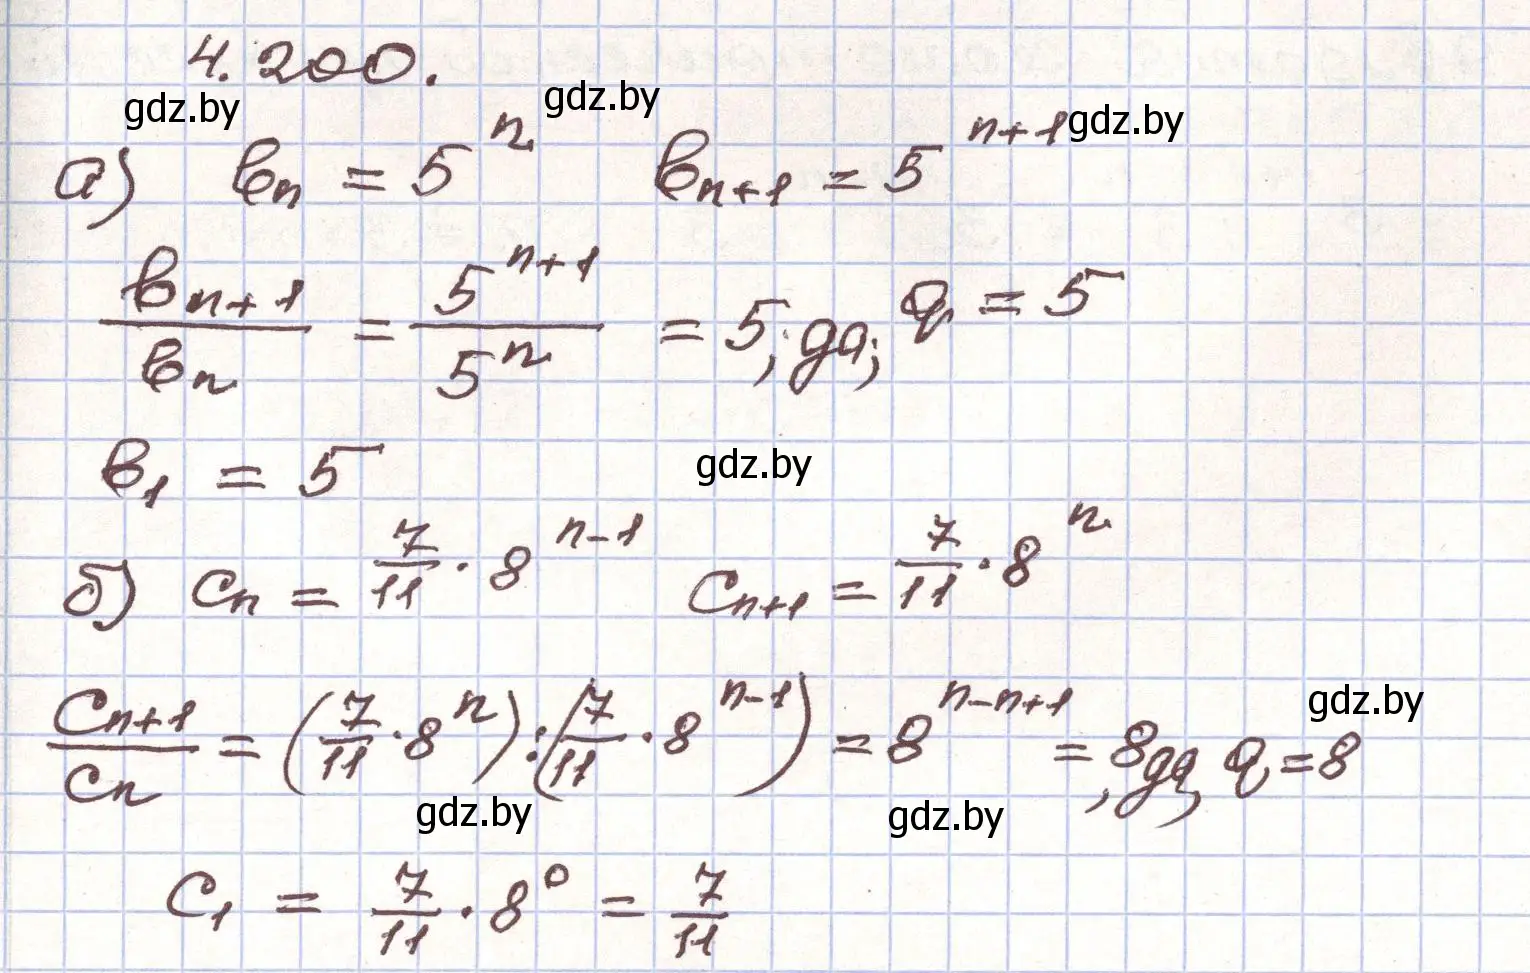 4.200.
gdz.by gdz.by
а) bₙ = 5ⁿ bₙ₊₁ = 5ⁿ⁺¹ gdz.by
bₙ₊₁/bₙ = 5ⁿ⁺¹/5ⁿ = 5; да; q = 5
b₁ = 5 gdz.by
б) cₙ = 7/11 · 8ⁿ⁻¹ cₙ₊₁ = 7/11 · 8ⁿ
cₙ₊₁/cₙ = (7/11 · 8ⁿ) : (7/11 · 8ⁿ⁻¹) = 8ⁿ⁻ⁿ⁺¹ = 8, да, q = 8 gdz.by
gdz.by gdz.by
c₁ = 7/11 · 8⁰ = 7/11